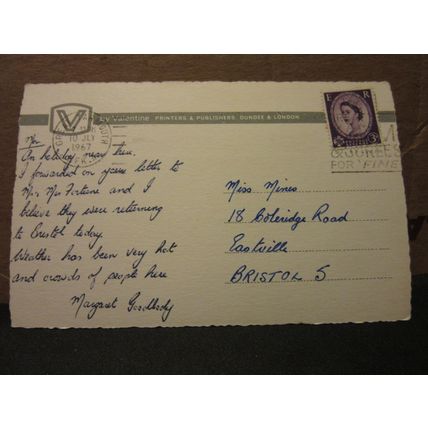 V
by Valentine PRINTERS & PUBLISHERS DUNDEE & LONDON
10 JLY
1967
E R
3D
FOR FINE
On holiday near here.
I forwarded on your letter to
Mr. Mrs Fortune and I
believe they were returning
to Bristol today.
Weather has been very hot
and crowds of people here
Margaret
Miss Mines
18 Coleridge Road
Eastville
BRISTOL 5